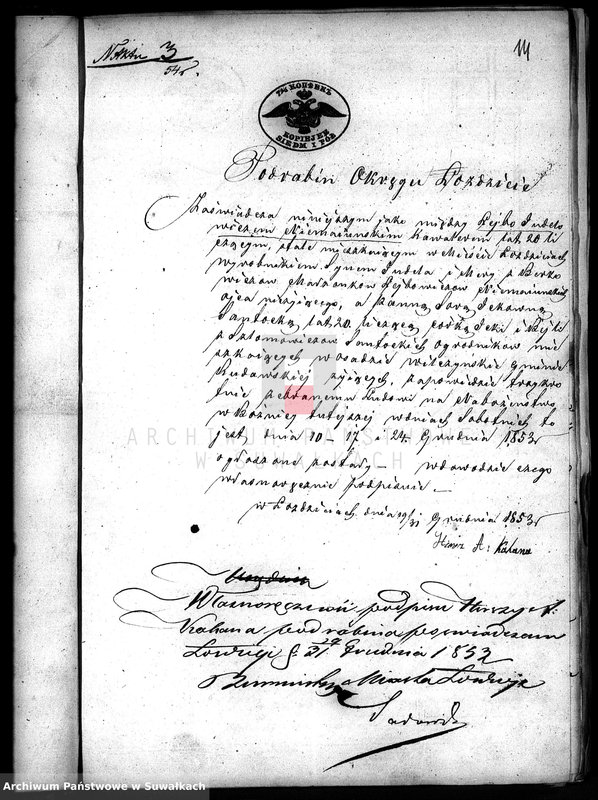 N Aktu 3
54 r.
14
7½ КОПѢЕКЪ
KOPIEJEK
SIEDM I PÓŁ
Podrabin Okręgu Łoździeie
Zaświadcza niniejszym jako między Lejbo Judelo
wiczem Niemaiunskim Kawalerem lat 20 li
czącym, stale mieszkającym w Mieście Łoździeiach
wyrobnikiem Synem Judela i Mery z Berko
wiczów Małżonków Lejbowiczów Niemaiunskich
ojca nieżyjącego, a Panną Sorą Jckowną
Santocką lat 20 liczącą córką Jcki i Hejli
z Szlomowiczow Santockich Ogrodników mie
szkających w osadzie Wilczyńskie Gminie
Kudawskiej żyjących, zapowiedzie trzykro
tnie zebranemu Ludowi na Nabożeństwo
w Bożnicy tutejszej w dniach Sobotnich to
jest dnia 10 - 17 i 24 Grudnia 1853 r
ogłoszone zostały — w dowodzie czego
własnoręcznie podpisuie —
w Łoździeiach dnia 19/31 Grudnia 1853 r
A: Kahana
Własnoręczność podpisu
Kahana podrabina poświadczam
Łoździeje d. 19/31 Grudnia 1853
Burmistrz Miasta Łoździeje
ARCHIWUM PAŃSTWOWE
W SUWAŁKACH
Archiwum Państwowe w Suwałkach